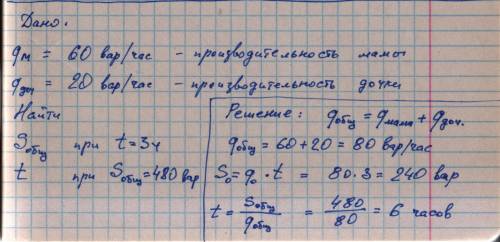 Дано.
qм = 60 вар/час - производительность мамы
qдоч = 20 вар/час - производительность дочки
Найти
Sобщ при t=3ч
t при Sобщ=480 вар
Решение: qобщ = qмама + qдоч.
qобщ = 60+20 = 80 вар/час
S₀=q₀·t = 80·3=240 вар
t = Sобщ/qобщ = 480/80 = 6 часов